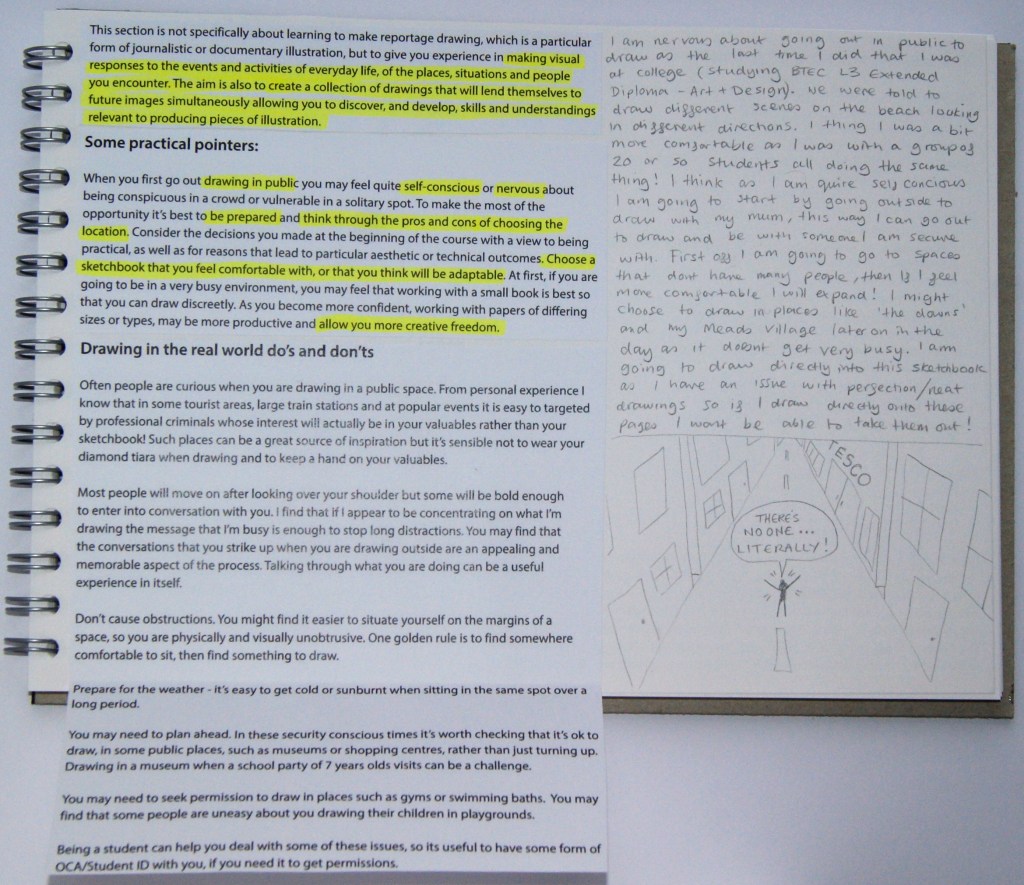 This section is not specifically about learning to make reportage drawing, which is a particular
form of journalistic or documentary illustration, but to give you experience in making visual
responses to the events and activities of everyday life, of the places, situations and people
you encounter. The aim is also to create a collection of drawings that will lend themselves to
future images simultaneously allowing you to discover, and develop, skills and understandings
relevant to producing pieces of illustration.
Some practical pointers:
When you first go out drawing in public you may feel quite self-conscious or nervous about
being conspicuous in a crowd or vulnerable in a solitary spot. To make the most of the
opportunity it's best to be prepared and think through the pros and cons of choosing the
location. Consider the decisions you made at the beginning of the course with a view to being
practical, as well as for reasons that lead to particular aesthetic or technical outcomes. Choose a
sketchbook that you feel comfortable with, or that you think will be adaptable. At first, if you are
going to be in a very busy environment, you may feel that working with a small book is best so
that you can draw discreetly. As you become more confident, working with papers of differing
sizes or types, may be more productive and allow you more creative freedom.
Drawing in the real world do's and don'ts
Often people are curious when you are drawing in a public space. From personal experience I
know that in some tourist areas, large train stations and at popular events it is easy to targeted
by professional criminals whose interest will actually be in your valuables rather than your
sketchbook! Such places can be a great source of inspiration but it's sensible not to wear your
diamond tiara when drawing and to keep a hand on your valuables.
Most people will move on after looking over your shoulder but some will be bold enough
to enter into conversation with you. I find that if I appear to be concentrating on what I'm
drawing the message that I'm busy is enough to stop long distractions. You may find that
the conversations that you strike up when you are drawing outside are an appealing and
memorable aspect of the process. Talking through what you are doing can be a useful
experience in itself.
Don't cause obstructions. You might find it easier to situate yourself on the margins of a
space, so you are physically and visually unobtrusive. One golden rule is to find somewhere
comfortable to sit, then find something to draw.
Prepare for the weather - it's easy to get cold or sunburnt when sitting in the same spot over a
long period.
You may need to plan ahead. In these security conscious times it's worth checking that it's ok to
draw, in some public places, such as museums or shopping centres, rather than just turning up.
Drawing in a museum when a school party of 7 years olds visits can be a challenge.
You may need to seek permission to draw in places such as gyms or swimming baths. You may
find that some people are uneasy about you drawing their children in playgrounds.
Being a student can help you deal with some of these issues, so its useful to have some form of
OCA/Student ID with you, if you need it to get permissions.
I am nervous about going out in public to
draw as the last time I did that I was
at college (studying BTEC L3 Extended
Diploma - Art + Design). We were told to
draw different scenes on the beach looking
in different directions. I thing I was a bit
more comfortable as I was with a group of
20 or so students all doing the same
thing! I think as I am quire self concious
I am going to start by going outside to
draw with my mum, this way I can go out
to draw and be with someone I am secure
with. First off I am going to go to spaces
that dont have many people, then if I feel
more comfortable I will expand! I might
choose to draw in places like 'the downs'
and my Meads Village later on in the
day as it doesnt get very busy. I am
going to draw directly into this sketchbook
as I have an issue with perfection/neat
drawings so if I draw directly onto these
pages I wont be able to take them out!
TESCO
THERE'S
NO ONE ...
LITERALLY!